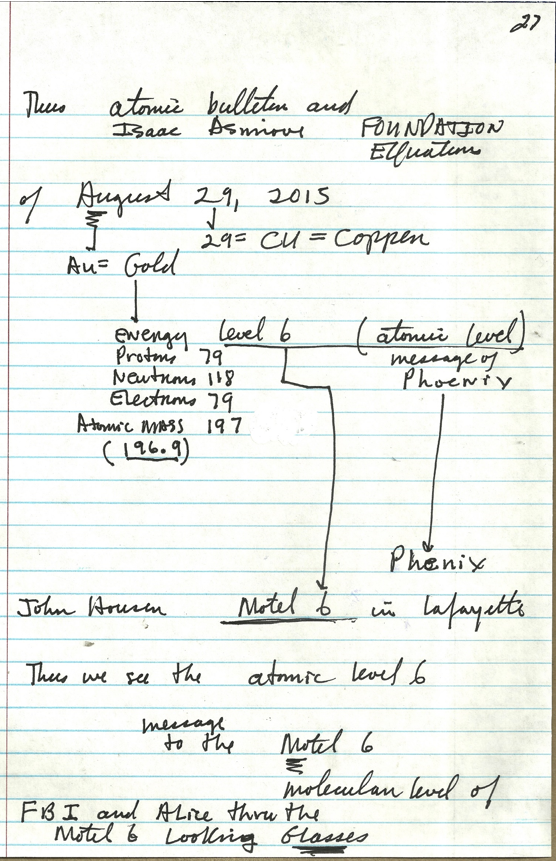 27
Thus atomic bulletin and
Isaac Asmiove FOUNDATION
Equation
of August 29, 2015
29 = CU = Copper
Au = Gold
energy level 6 (atomic level)
Protons 79 message of
Neutrons 118 Phoenix
Electrons 79
Atomic MASS 197
(196.9)
Phenix
John Housen Motel 6 in Lafayette
Thus we see the atomic level 6
message
to the Motel 6
molecular level of
FBI and Alice thru the
Motel 6 Looking Glasses